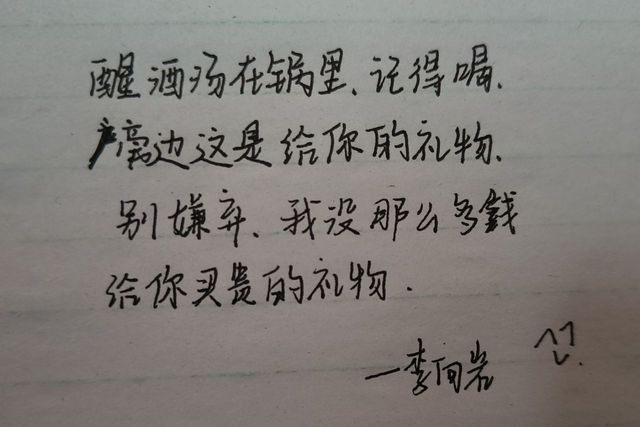 醒酒汤在锅里、记得喝、
旁边这是给你的礼物、
别嫌弃、我没那么多钱
给你买贵的礼物.
—李向岩